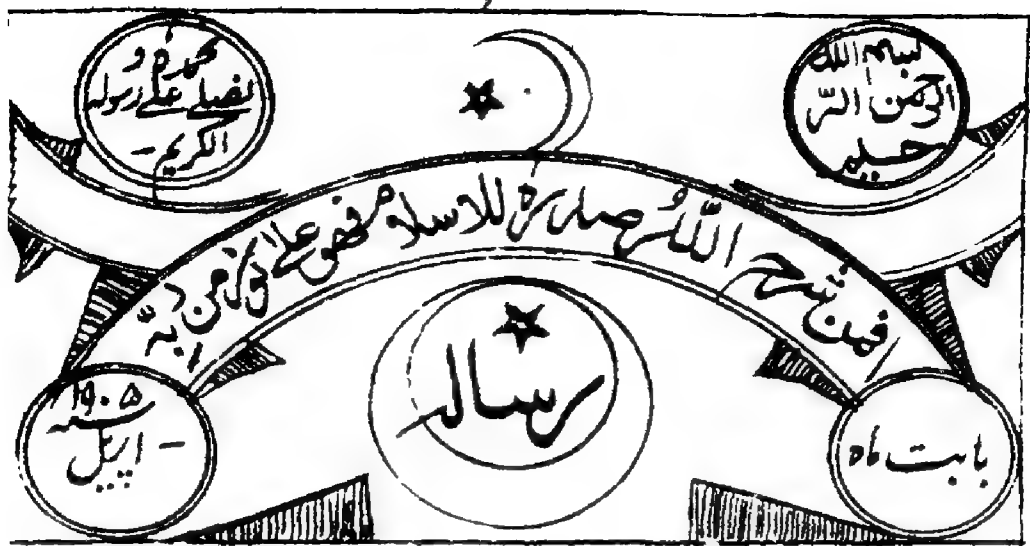 بسم الله
الرحمن الرّ
حیم
نحمده و
نصلے علے رسوله
الکریم -
فمن شرح اللہ صدره للاسلام فهو علے نور من ربه
رساله
بابت ماه
اپریل -
سنه ۱۹۰۵